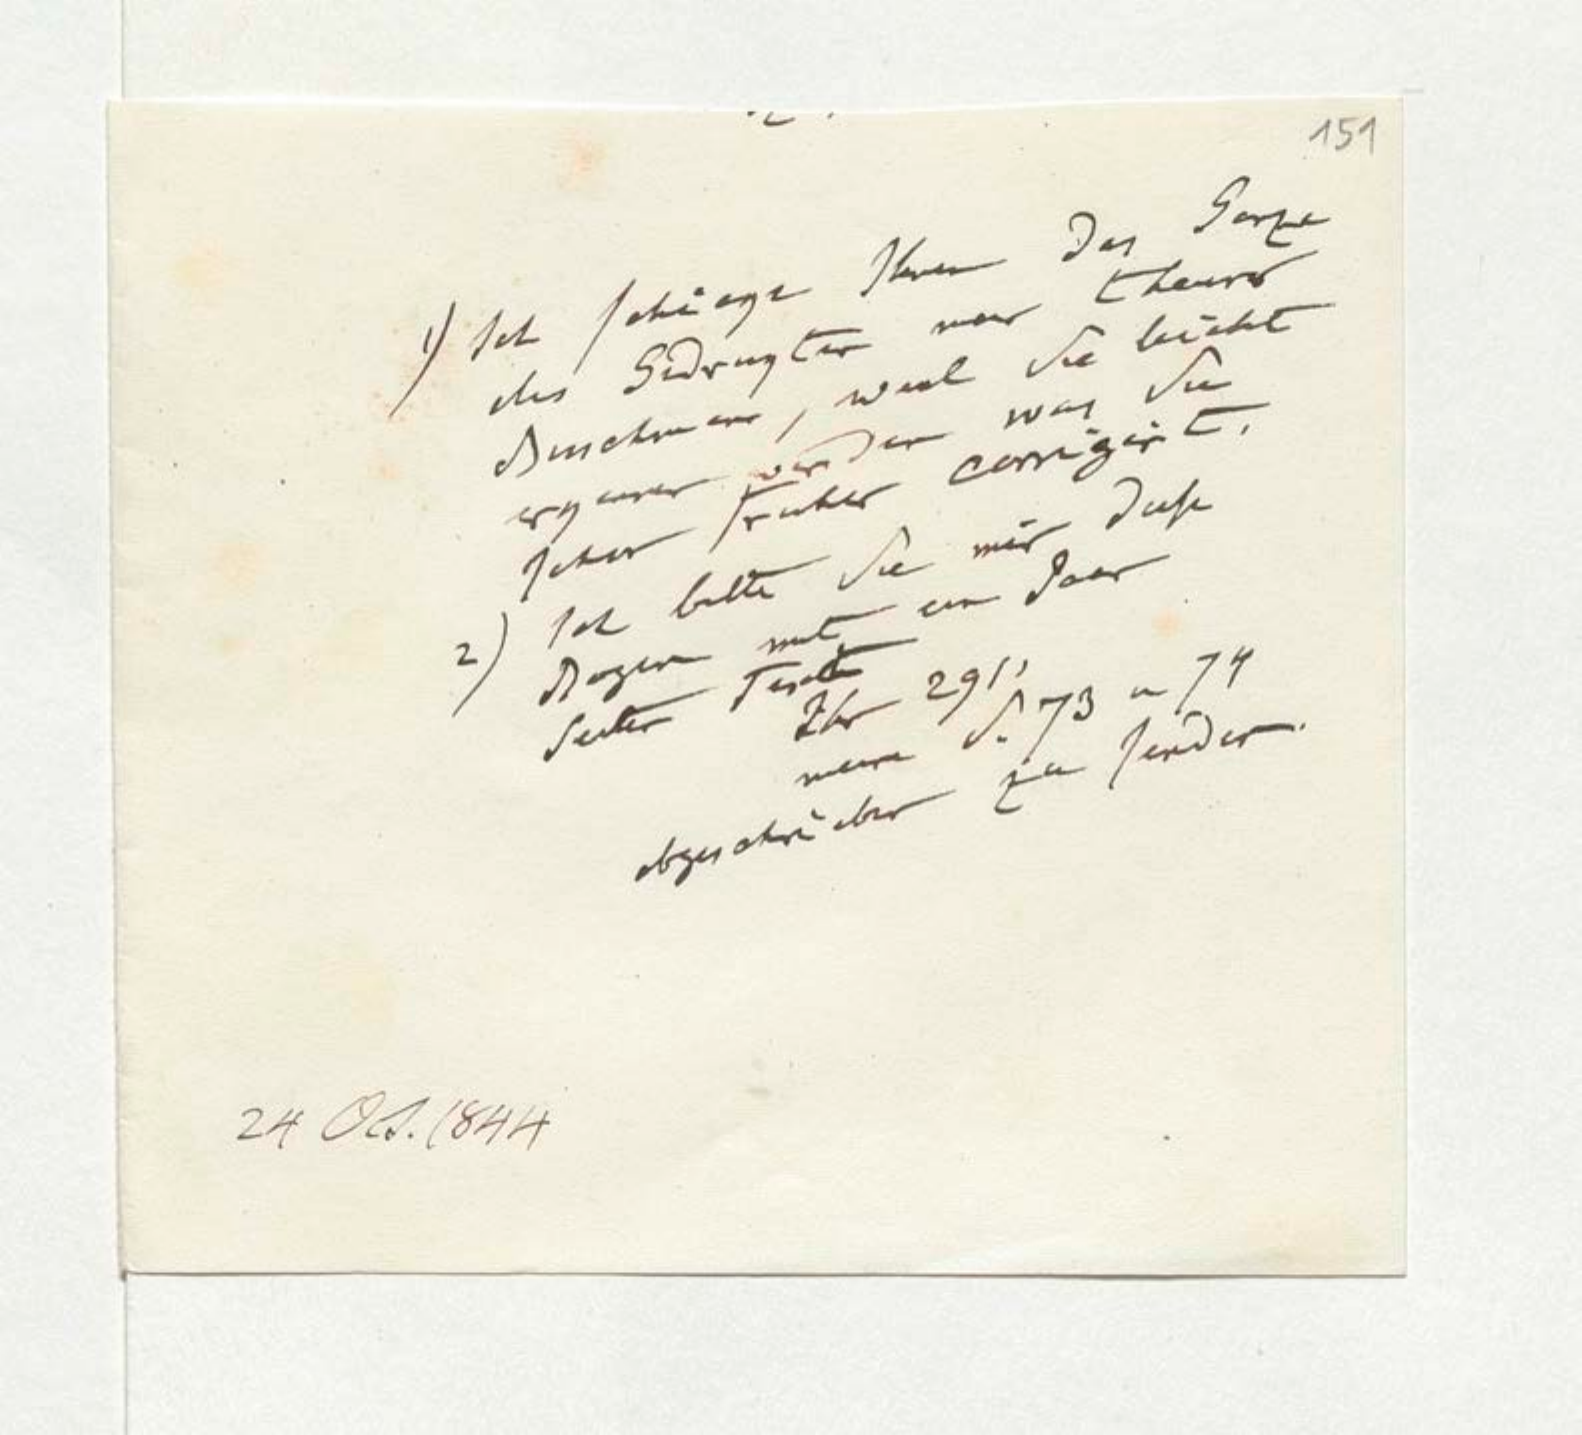 151
1) Ich schicke Ihnen das Ganze
des Gedrukten mein theurer
Buschmann, weil Sie leicht
erkennen werden was Sie
schon früher corrigirt.
2) Ich bitte Sie mir diese
Bogen mit ein Paar
Seiten Text
Ihr 291,
meine S. 73 u 74
abgeschrieben zu senden.
24 Oct. 1844